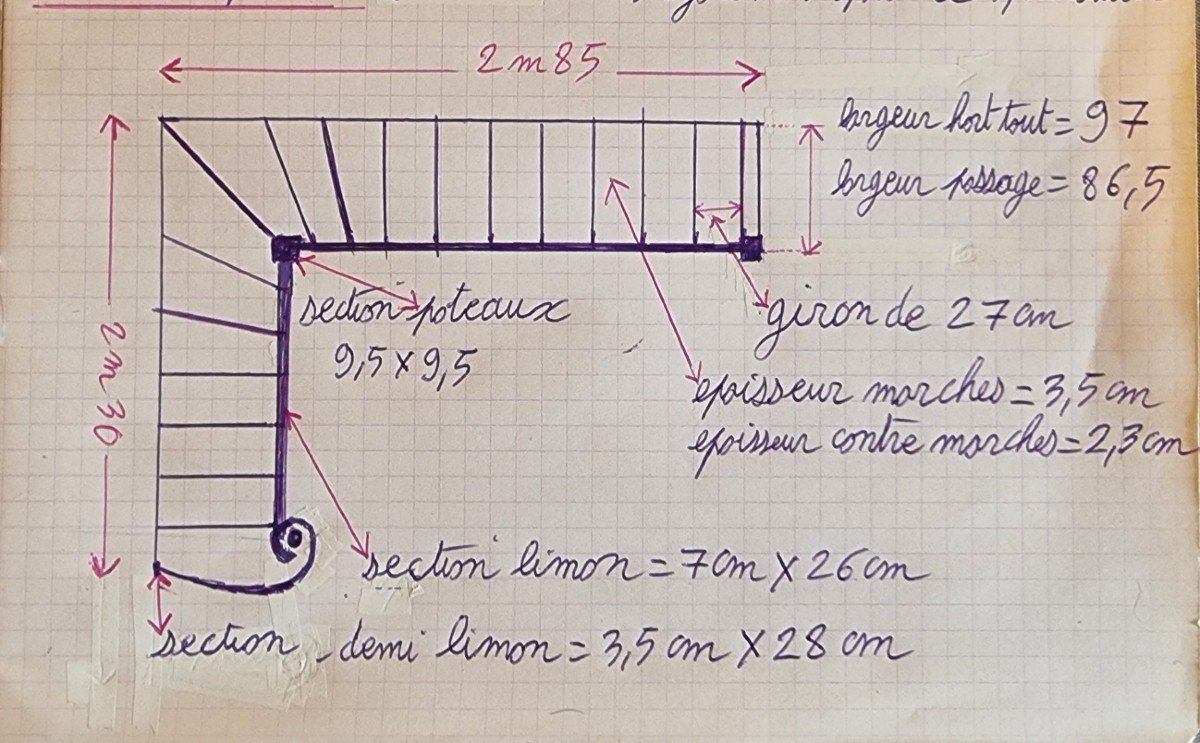 2m85
largeur hort tout = 97
largeur passage = 86,5
2m30
section poteaux
9,5 x 9,5
giron de 27 cm
epaisseur marches = 3,5 cm
epaisseur contre marches = 2,3 cm
section limon = 7cm X 26 cm
section - demi limon = 3,5 cm X 28 cm